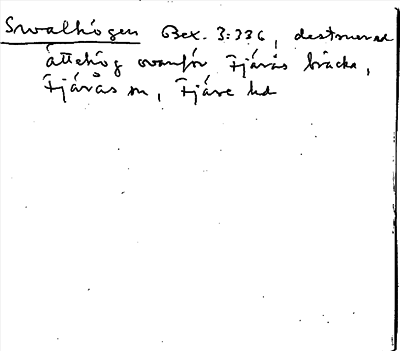 Svalhögen Bex. 3:336, destruerad
ättehög ovanför Fjärås bräcka,
Fjärås sn, Fjäre hd